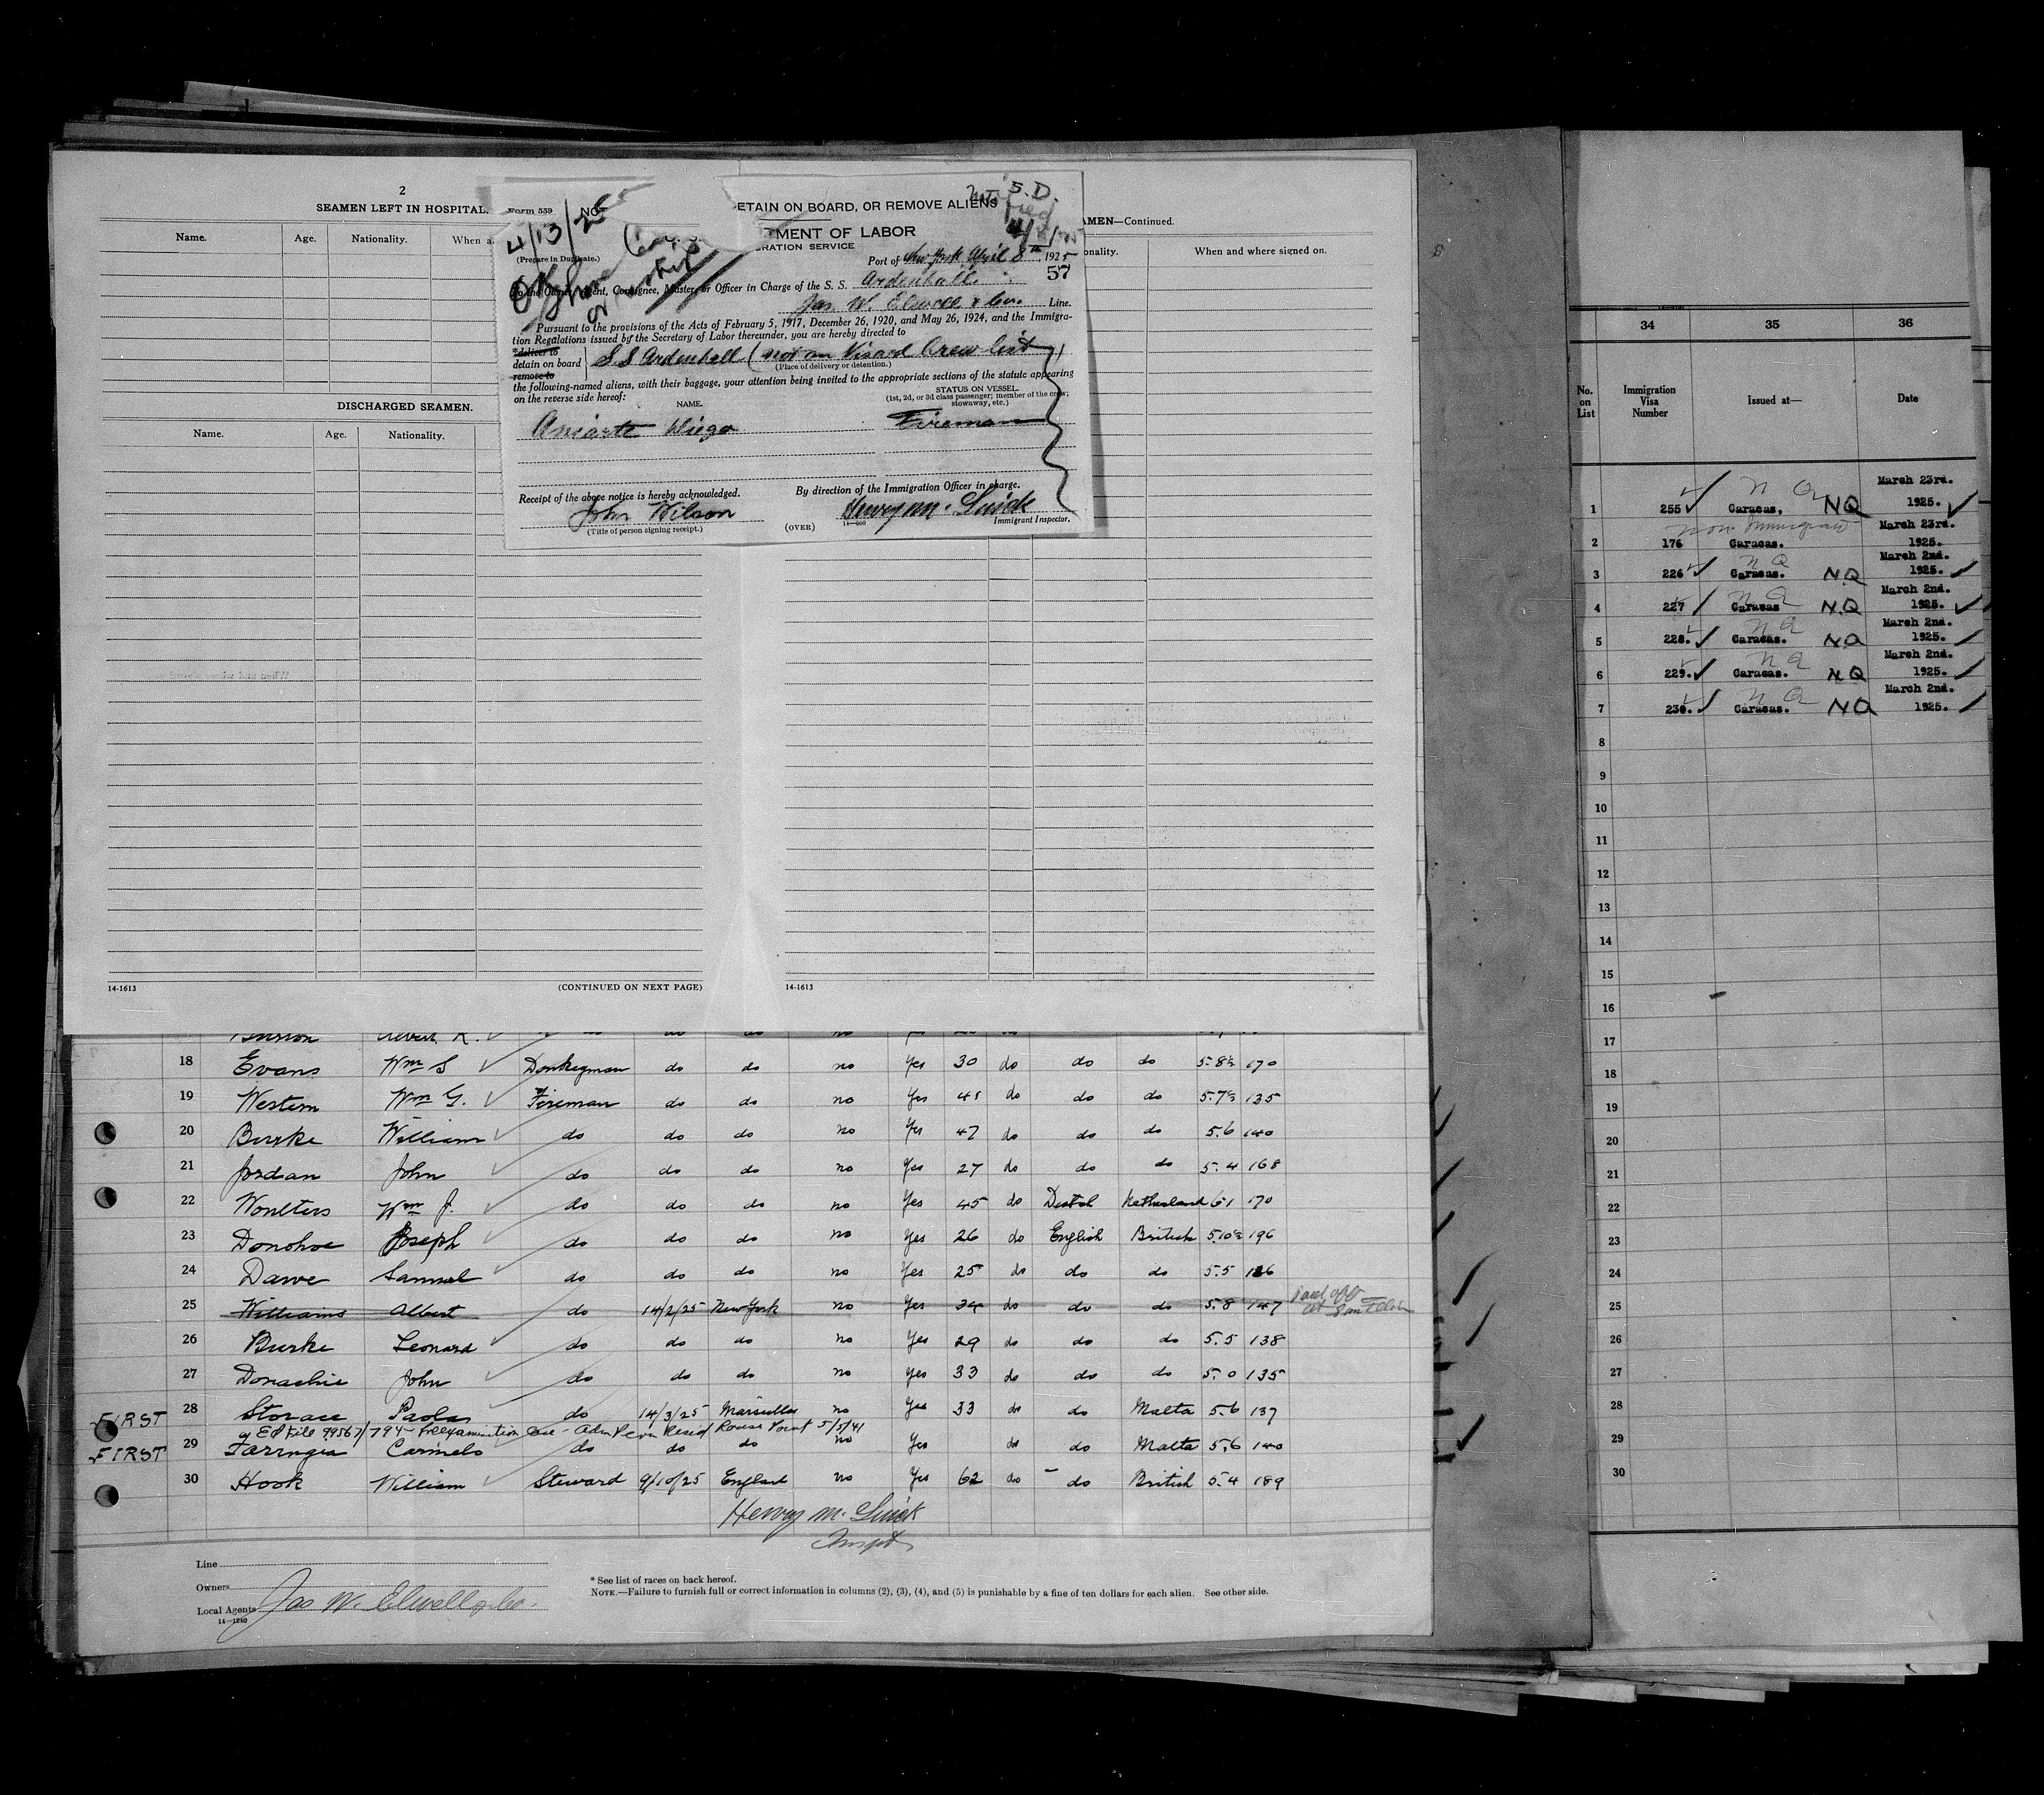 2
SEAMEN LEFT IN HOSPITAL.
Name. Age. Nationality. When a
DISCHARGED SEAMEN.
Name. Age. Nationality.
14-1613
(CONTINUED ON NEXT PAGE)
AMEN—Continued.
onality. When and where signed on.
14-1613
Form 559 No.
4/13/25
(Prepare in Duplicate.)
ETAIN ON BOARD, OR REMOVE ALIENS
S.D.
TMENT OF LABOR
RATION SERVICE
Port of New York April 8th, 1925
57
To the Owner, Agent, Consignee, Master, or Officer in Charge of the S. S. Ardenhall
Jas. W. Elwell & Co. Line.
Pursuant to the provisions of the Acts of February 5, 1917, December 26, 1920, and May 26, 1924, and the Immigra-
tion Regulations issued by the Secretary of Labor thereunder, you are hereby directed to
*deliver to
detain on board S.S Ardenhall (not on Visaed Crew list)
remove to
(Place of delivery or detention.)
the following-named aliens, with their baggage, your attention being invited to the appropriate sections of the statute appearing
on the reverse side hereof:
NAME.
STATUS ON VESSEL.
(1st, 2d, or 3d class passenger; member of the crew;
stowaway, etc.)
Aniarte Diego Fireman
Receipt of the above notice is hereby acknowledged.
By direction of the Immigration Officer in charge.
John Wilson
Henry M. Luick
(Title of person signing receipt.)
(OVER)
14—660
Immigrant Inspector.
34 35 36
No. on List Immigration Visa Number Issued at— Date
1 255 Caracas. NQ March 23rd. 1925.
Non Immigrant
2 176 Caracas. March 23rd. 1925.
3 226 Caracas. NQ March 2nd. 1925.
4 227 Caracas NQ March 2nd. 1925.
5 228. Caracas. NQ March 2nd. 1925.
6 229. Caracas. NQ March 2nd. 1925.
7 230. Caracas. NQ March 2nd. 1925.
8
9
10
11
12
13
14
15
16
17
18
19
20
21
22
23
24
25
26
27
28
29
30
18 Evans Wm S Donkeyman do do no Yes 30 do do do 5.8½ 170
19 Western Wm G. Fireman do do no Yes 45 do do do 5.7½ 135
20 Burke William do do do no Yes 47 do do do 5.6 140
21 Jordan John do do do no Yes 27 do do do 5.4 168
22 Woulters Wm J. do do do no Yes 45 do Dutch Netherland 6.1 170
23 Donohoe Joseph do do do no Yes 26 do English British 5.10½ 196
24 Dawe Samuel do do do no Yes 25 do do do 5.5
25 Williams Albert do 14/2/25 New York no Yes 34 do do do 5.8 147 Paid off at San Feliu
26 Burke Leonard do do do no Yes 29 do do do 5.5 138
27 Donachie John do do do no Yes 33 do do do 5.0 135
FIRST 28 Storace Paola do 14/3/25 Marseilles no Yes 33 do do Malta 5.6 137
EP File 99567/794 - Preexamination Case - Adm Perm Resid Rouses Point 5/5/41
FIRST 29 Farrugia Carmelo do do do no Yes do do Malta 5.6 140
30 Hook William Steward 9/10/25 England no Yes 62 do do British 5.4 189
Henry M. Luick
Inspt
Line
Owners
Local Agents Jas W. Elwell & Co.
14—1240
* See list of races on back hereof.
NOTE.—Failure to furnish full or correct information in columns (2), (3), (4), and (5) is punishable by a fine of ten dollars for each alien. See other side.